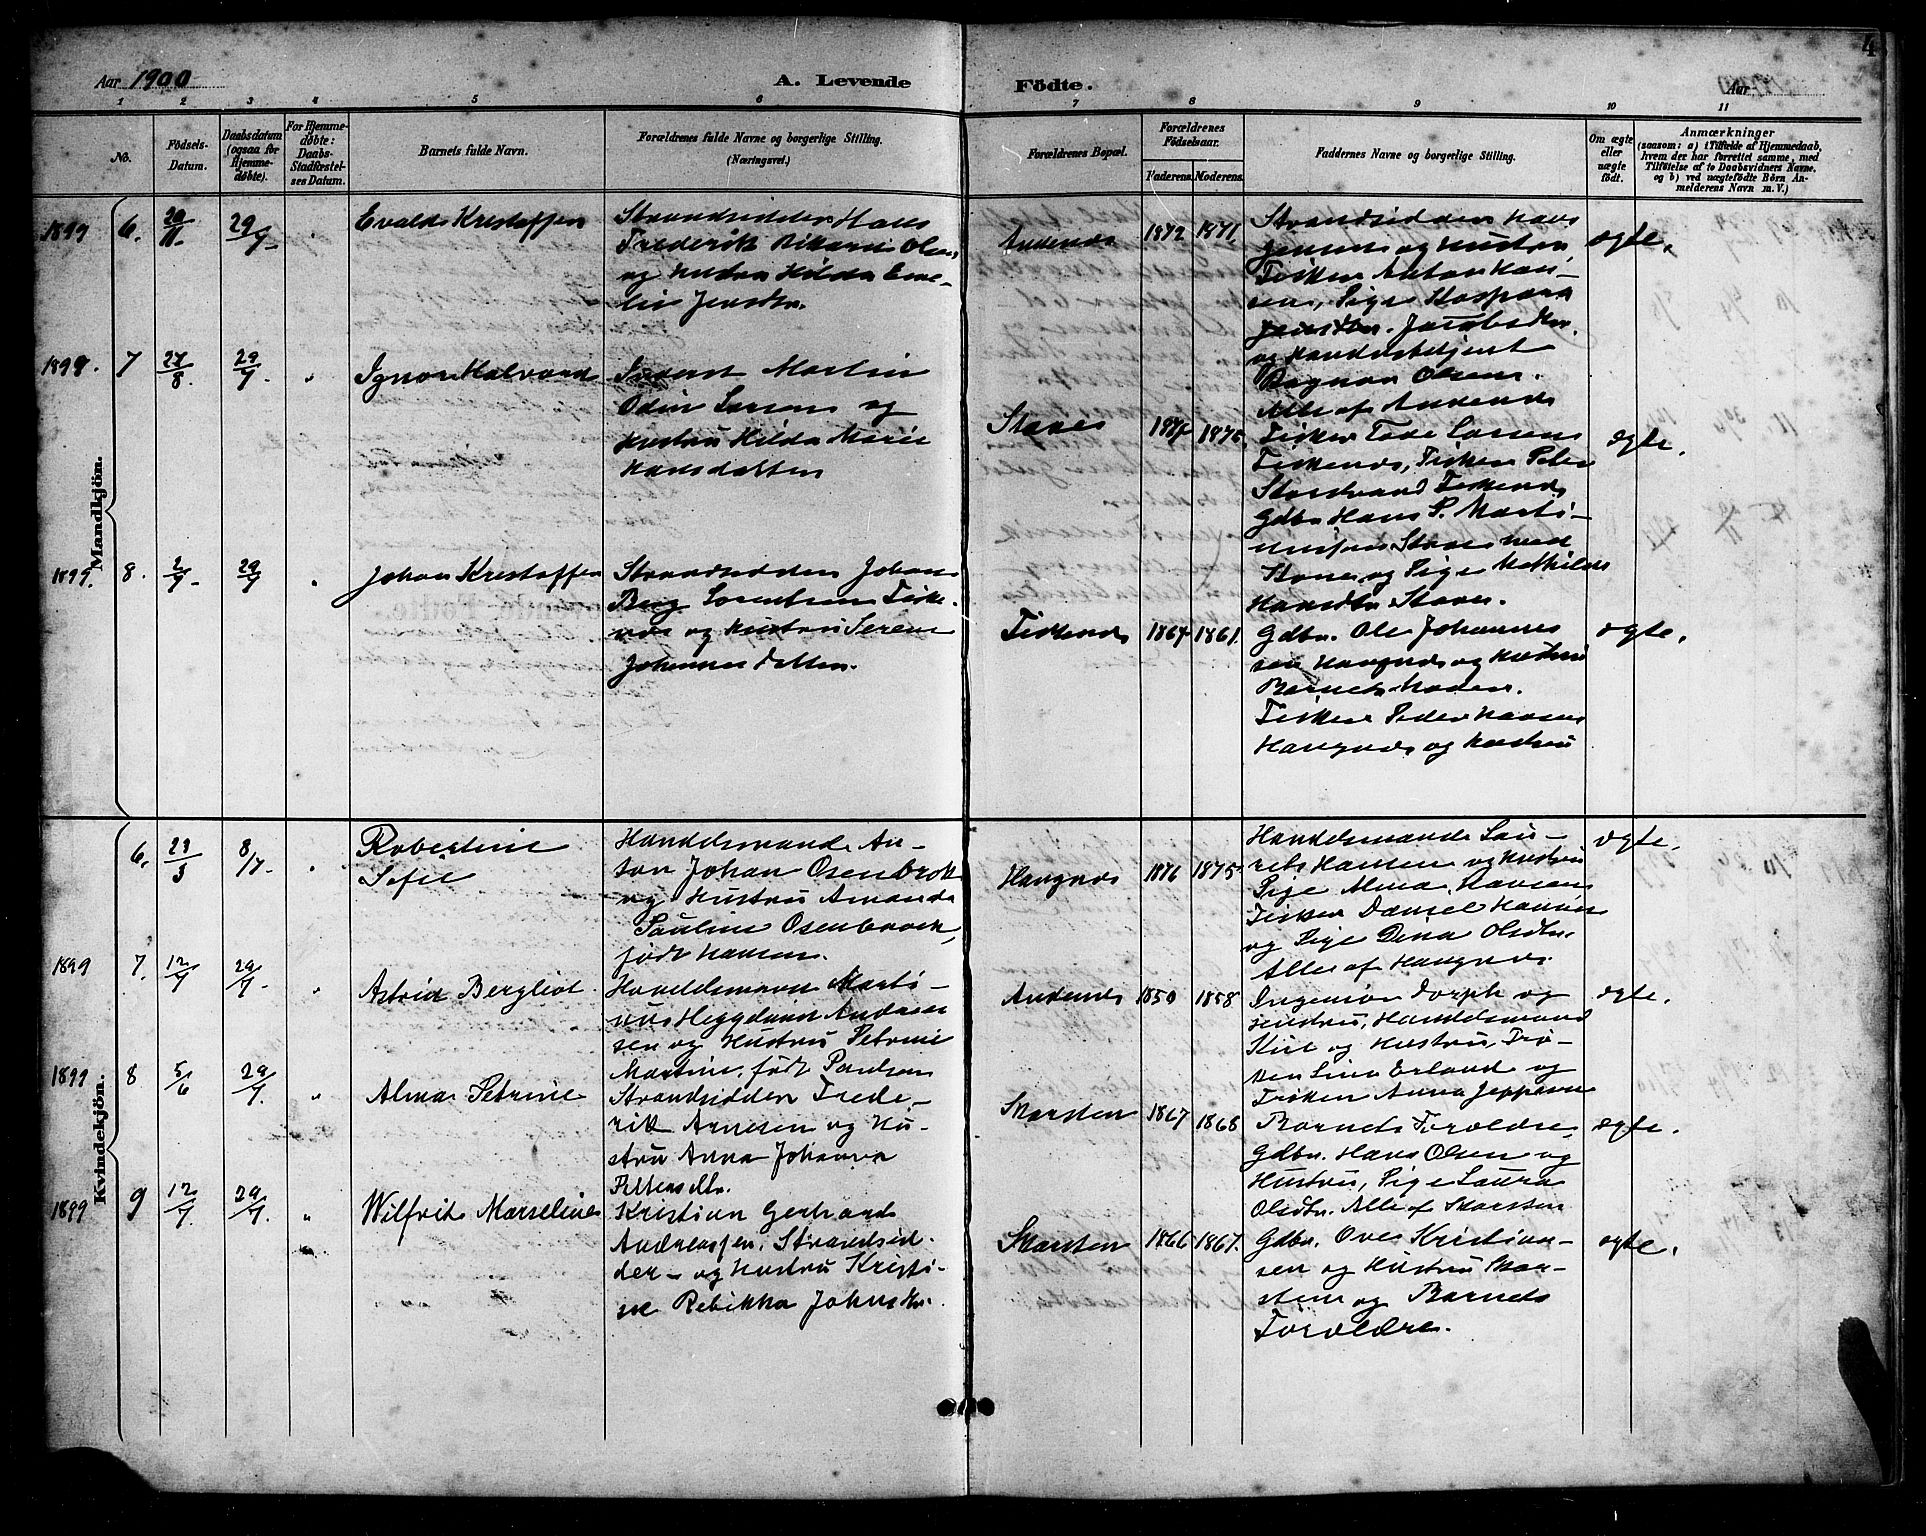 4
Aar 1900
A. Levende
Födte.
Aar
1 2 3 4 5 6 7 8 9 10 11
No.
Födsels-
Datum.
Daabsdatum
(ogsaa for
Hjemme-
döbte).
For Hjemme-
döbte:
Daabs-
Stadfæstel-
ses Datum.
Barnets fulde Navn.
Forældrenes fulde Navne og borgerlige Stilling.
(Næringsvei.)
Forældrenes Bopæl.
Forældrenes
Födselsaar.
Faderens. Moderens.
Faddernes Navne og borgerlige Stilling.
Om ægte
eller
uægte
födt.
Anmærkninger
(saasom: a) i Tilfælde af Hjemmedaab,
hvem der har forrettet samme, med
Tilföielse af to Daabsvidners Navne,
og b) ved uægtefödte Börn An-
melderens Navn m. V.)
Mandkjön.
1899 6. 20/11. 29/7. Evald Kristoffer
Strandsidder Hans
Frederik Rikard Olsen
og Hustru Hilda Eme-
lie Jensdtr.
Andenæs 1872 1871.
Strandsidder Hans
Jensen og Hustru
Fisker Anton Han-
sen, Pige Kaspara
Jacobsdtr.
og Handelsbetjent
Ragnar Olsen.
Alle af Andenæs
ægte.
1899. 7 27/8. 29/7. Ignar Halvard
Martin
Odin Larsen og
Hustru Hilda Marie
Hansdatter
Staves
Fisker Tobe Larsen
Fiskenæs, Fisker Peder
Storstrand Fiskenæs
Gdbr. Hans P. Marti-
nussen Stave med
Kone og Pige Mathilde
Hansdtr Stave.
ægte.
1899. 8. 2/7. 29/7 Johan Kristoffer
Strandsidder Johan
Berg Lorentsen Fiske-
næs og Hustru Serene
Johannesdatter.
Fiskenæs 1864 1861.
Gdbr. Ole Johannes
sen Haugnæs og Hustru
Barnets Moder.
Fisker Peder Hansen
Haugnæs og Hustru
ægte.
Kvindekjön.
6. 23/3 8/7. Robertine
Sofie
Handelsmand An-
ton Johan Osenbrok
og Hustru Amanda
Pauline Osenbrock,
født Hansen.
Haugnæs 1876 1875.
Handelsmand Lau-
rits Hansen og Hustru
Pige Alma Hansen
Fisker Daniel Hansen
og Pige Dina Olsdtr.
Alle af Haugnæs.
ægte.
1899 7. 12/7 29/7. Astrid Bergliot.
Handelsmand Marti-
nus Heggelund Andreas
sen og Hustru Petrine
Martine, født Paulsen
Andenæs 1850 1858
Ingeniør Dorph og
Hustru, Handelsmand
Kiil og Hustru, Frø-
ken Lina Erland og
Frøken Anna Jeppesen
ægte.
1899 8 5/6 29/7. Alma Petrine
Strandsidder Frede-
rik Arnesen og Hu-
stru Anna Johanna
Pettersdtr.
Skarsten 1867 1868
Barnets Forældre,
Gdbr. Hans Olsen og
Hustru, Pige Laura
Olsdtr. Alle af Skarsten
ægte.
1899 9 12/7. 29/7. Wilfrid Marseline
Kristian Gerhard
Andreassen, Strandsid-
der - og Hustru Kristi-
ne Rebikka Johnsdtr.
Skarsten 1866 1867.
Gdbr. Ove Kristian-
sen og Hustru Skar-
sten og Barnets
Forældre.
ægte.